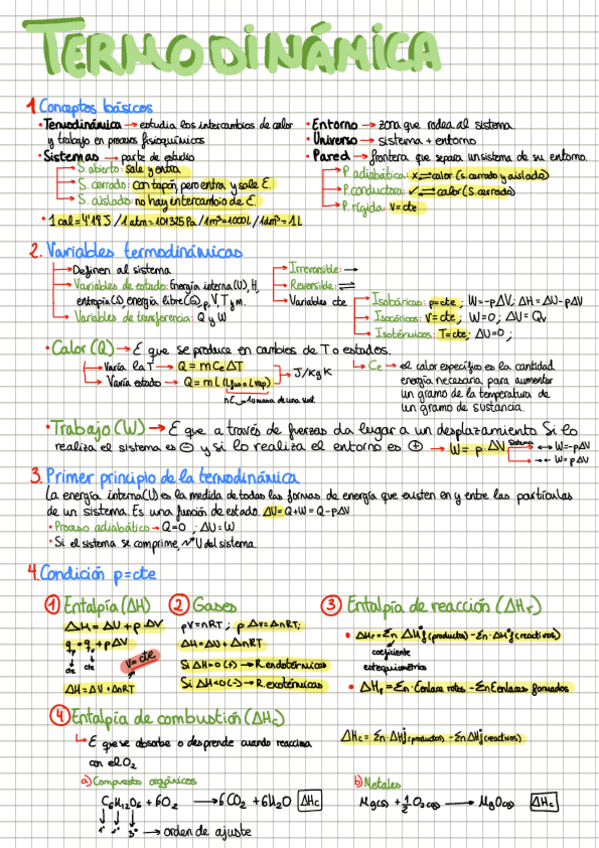 TERMODINÁMICA
1. Conceptos básicos
• Termodinámica → estudia los intercambios de calor
y trabajo en procesos fisioquímicos
• Sistemas → parte de estudio
S. abierto: sale y entra
S. cerrado: con tapón, pero entra y sale E.
S. aislado: no hay intercambio de E.
• 1 cal = 4'18 J / 1 atm = 101325 Pa / 1m³ = 1000L / 1dm³ = 1L
• Entorno → zona que rodea al sistema
• Universo → sistema + entorno
• Pared → frontera que separa un sistema de su entorno.
P. adiabática: x⇄calor (s. cerrado y aislado)
P. conductora: ✓⇄calor (S. cerrado)
P. rígida: V=cte
2. Variables termodinámicas
→ Definen al sistema
→ Variables de estado: Energía interna (U), H,
entropía (s), energía libre (G), p, V, T y m.
→ Variables de transferencia: Q y W
→ Irreversible: →
→ Reversible: ⇄
→ Variables cte
Isobáricas: p=cte; W=-pΔV; ΔH=ΔU-pΔV
Isocóricas: V=cte; W=0; ΔU=Qv
Isotérmicas: T=cte; ΔU=0;
• Calor (Q) → E que se produce en cambios de T o estados.
→ Varía la T → Q = m Ce ΔT
→ Varía estado → Q = m L (L fus o L vap)
J/kg K
→ Ce → el calor específico es la cantidad
energía necesaria para aumentar
un gramo de la temperatura de
un gramo de sustancia.
• Trabajo (W) → E que a través de fuerzas da lugar a un desplazamiento Si lo
realiza el sistema es ⊖ y si lo realiza el entorno es ⊕ → W = p ΔV
Sistema ←→ W=-pΔV
→← W=pΔV
3. Primer principio de la termodinámica
La energía interna (U) es la medida de todas las formas de energía que existen en y entre las partículas
de un sistema. Es una función de estado. ΔU=Q+W=Q-pΔV
• Proceso adiabático → Q=0; ΔU=W
• Si el sistema se comprime, ↗U del sistema
4. Condición p=cte
① Entalpía (ΔH)
ΔH = ΔU + p ΔV
qp = qv + pΔV
cte cte
V=cte
ΔH = ΔU + ΔnRT
② Gases
pV=nRT; pΔV=ΔnRT;
ΔH=ΔU+ΔnRT
Si ΔH>0 (+) → R. endotérmicas
Si ΔH<0 (-) → R. exotérmicas
③ Entalpía de reacción (ΔHr)
• ΔHr = Σn ΔHf (productos) - Σn·ΔHf (reactivos)
coeficiente
estequiométrico
• ΔHr = Σn·Enlaces rotos - Σn Enlaces formados
④ Entalpía de combustión (ΔHc)
→ E que se absorbe o desprende cuando reacciona
con el O2
ΔHc = Σn·ΔHf (productos) - Σn ΔHf (reactivos)
a) Compuestos orgánicos
C6H12O6 + 6O2 → 6CO2 + 6H2O ΔHc
1º 2º 3º → orden de ajuste
b) Metales
Mg(s) + 1/2 O2(g) → MgO(s) ΔHc